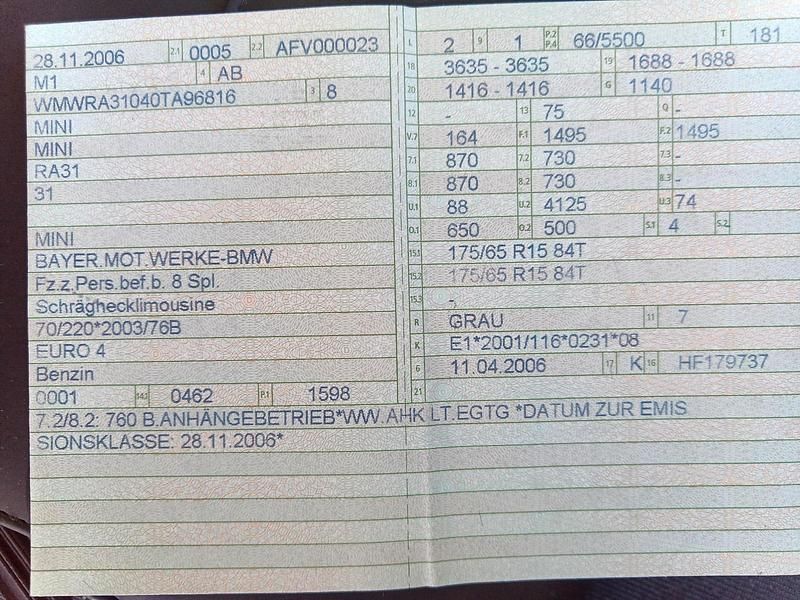 28.11.2006 2.1 0005 2.2 AFV000023
M1 4 AB
WMWRA31040TA96816 3 8
MINI
MINI
RA31
31
MINI
BAYER.MOT.WERKE-BMW
Fz.z.Pers.bef.b. 8 Spl.
Schräghecklimousine
70/220*2003/76B
EURO 4
Benzin
0001 14.1 0462 P.1 1598
L 2 9 1 P.2 P.4 66/5500 T 181
18 3635 - 3635 19 1688 - 1688
20 1416 - 1416 G 1140
12 - 13 75 Q -
V.7 164 F.1 1495 F.2 1495
7.1 870 7.2 730 7.3 -
8.1 870 8.2 730 8.3 -
U.1 88 U.2 4125 U.3 74
O.1 650 O.2 500 S.1 4 S.2
15.1 175/65 R15 84T
15.2 175/65 R15 84T
15.3 -
R GRAU 11 7
K E1*2001/116*0231*08
6 11.04.2006 17 K 16 HF179737
21
7.2/8.2: 760 B.ANHÄNGEBETRIEB*WW.AHK LT.EGTG *DATUM ZUR EMIS
SIONSKLASSE: 28.11.2006*